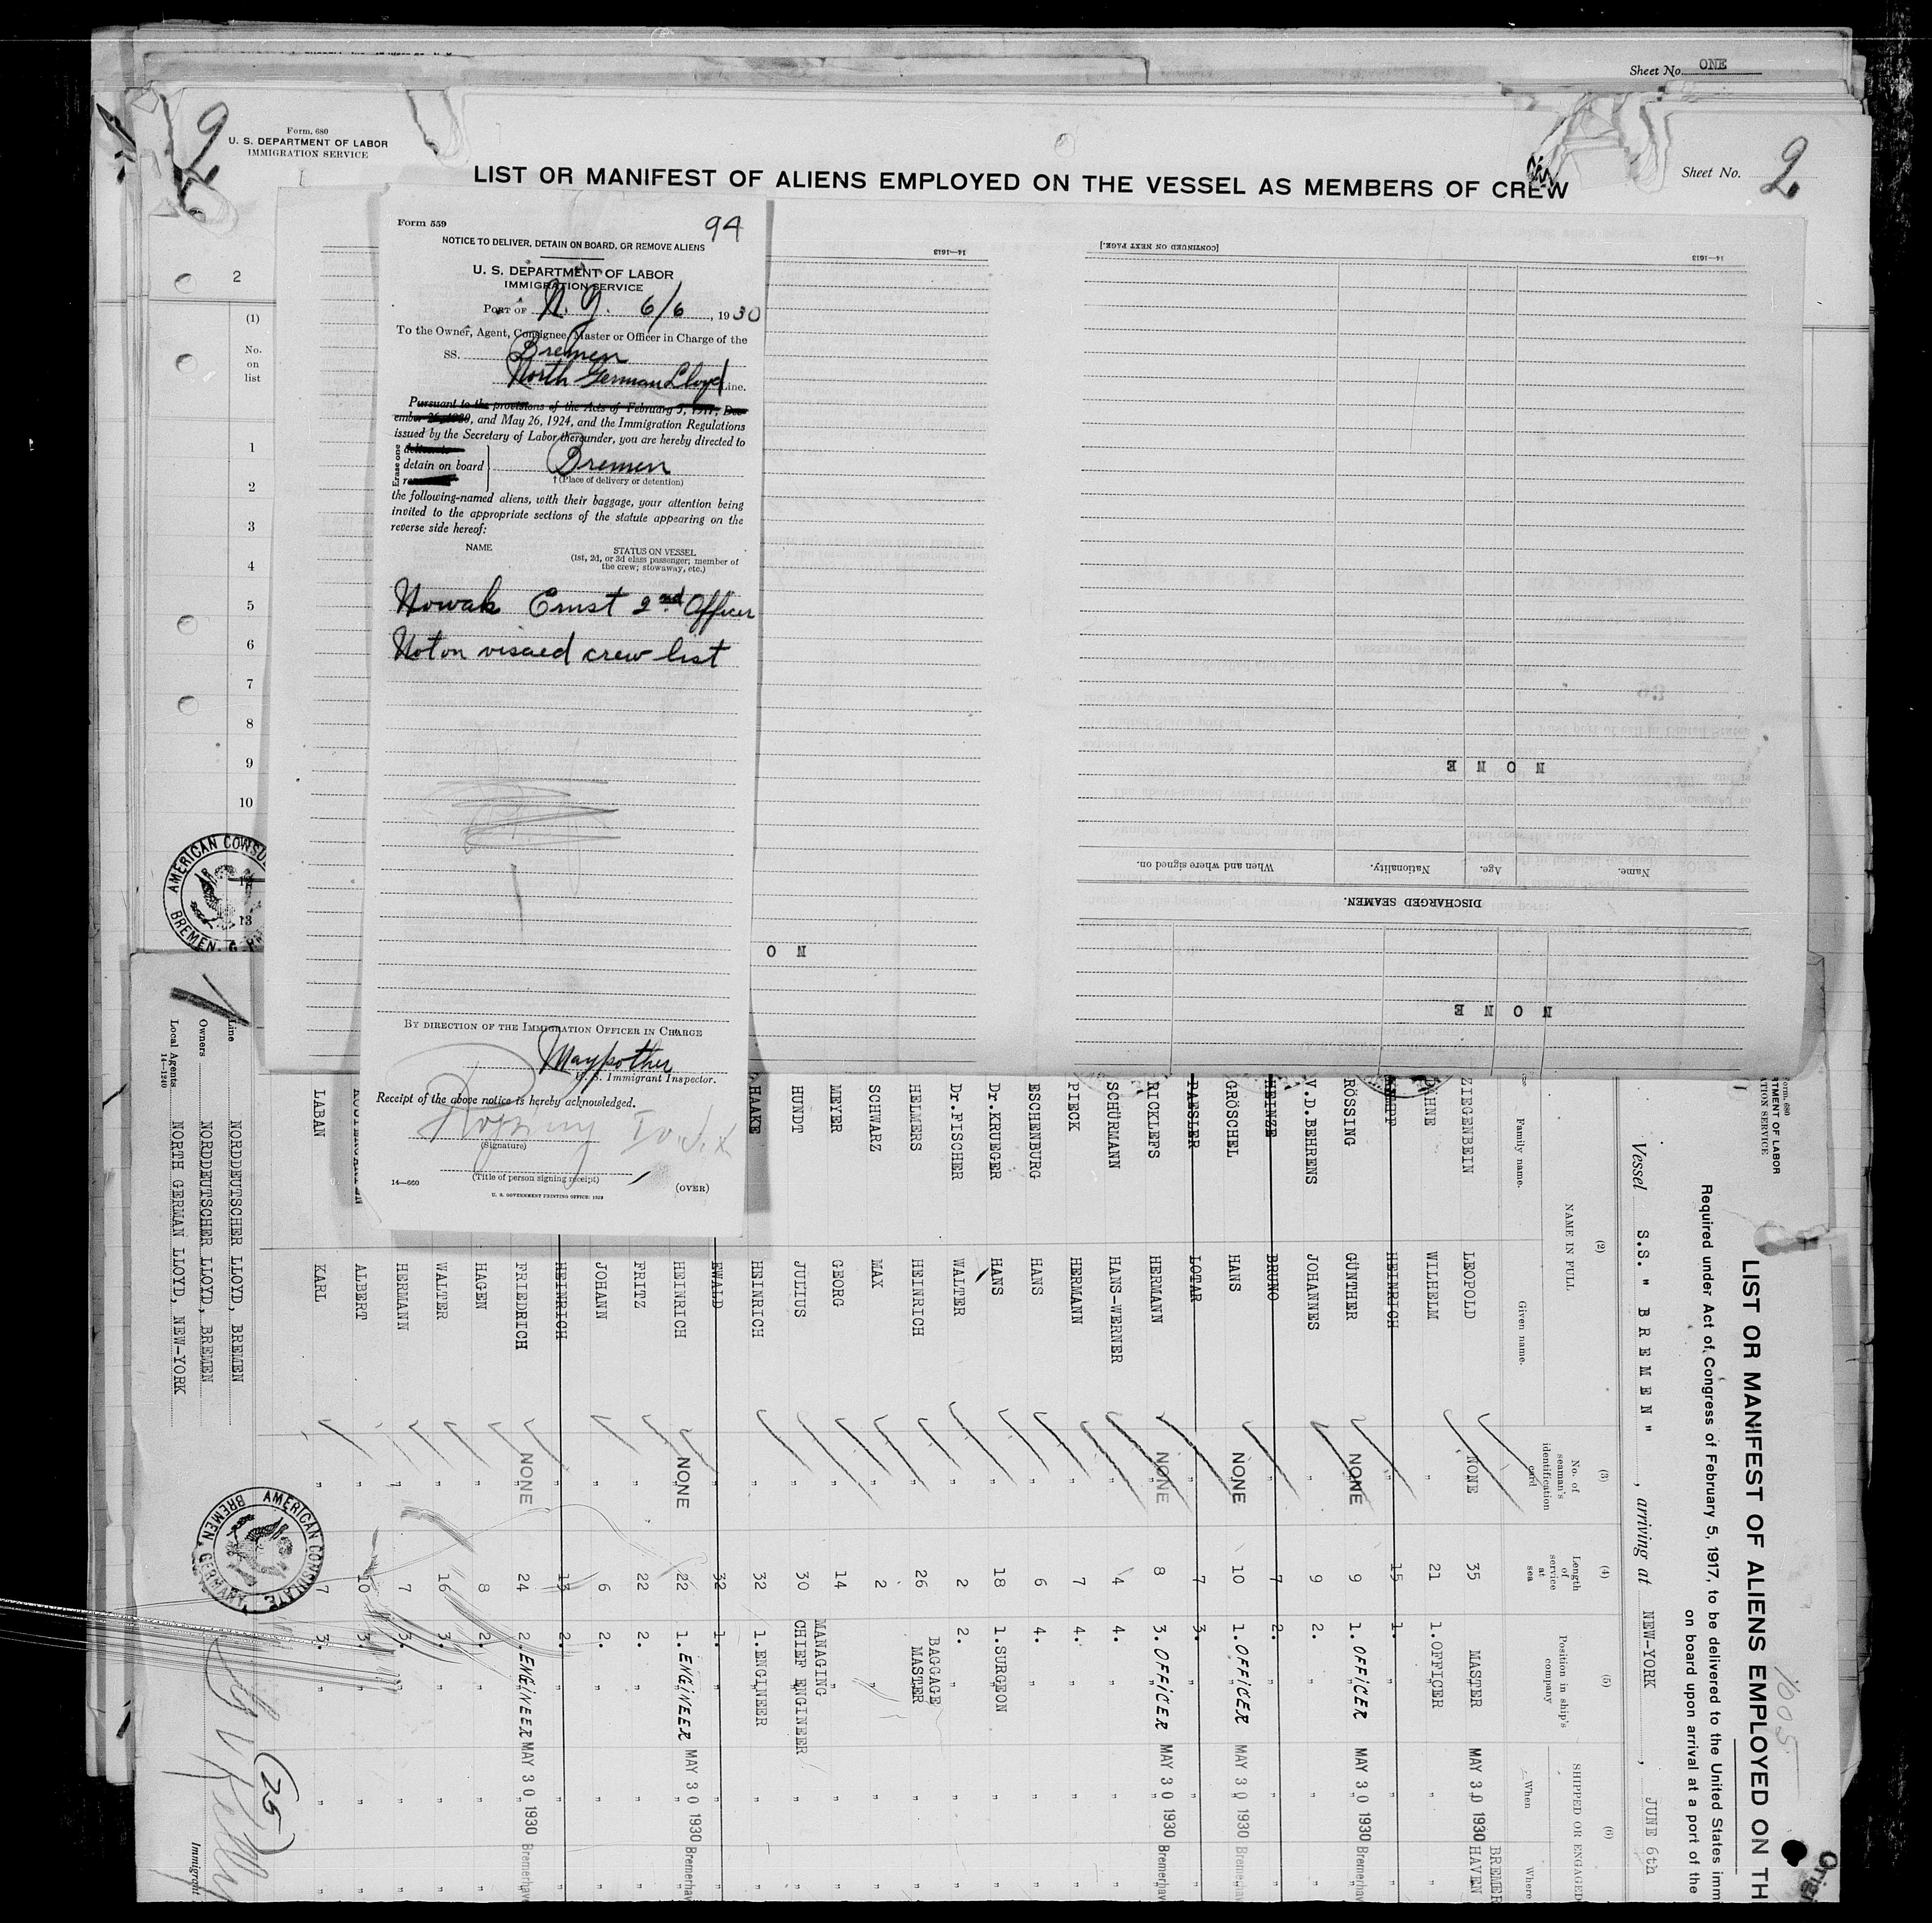 Sheet No. ONE
2
Form. 680
U. S. DEPARTMENT OF LABOR
IMMIGRATION SERVICE
LIST OR MANIFEST OF ALIENS EMPLOYED ON THE VESSEL AS MEMBERS OF CREW
Sheet No. 2
2
(1)
No.
on
list
1
2
3
4
5
6
7
8
9
10
13
AMERICAN CONSU
BREMEN, G
Form 559
94
NOTICE TO DELIVER, DETAIN ON BOARD, OR REMOVE ALIENS
U. S. DEPARTMENT OF LABOR
IMMIGRATION SERVICE
PORT OF N.Y. 6/6, 1930
To the Owner, Agent, Consignee, Master or Officer in Charge of the
SS. Bremen
North German Lloyd Line.
Pursuant to the provisions of the Acts of February 5, 1917, Dec-
ember 26, 1920, and May 26, 1924, and the Immigration Regulations
issued by the Secretary of Labor thereunder, you are hereby directed to
Erase one
detain on board } Bremen
† (Place of delivery or detention)
the following-named aliens, with their baggage, your attention being
invited to the appropriate sections of the statute appearing on the
reverse side hereof:
NAME
STATUS ON VESSEL
(1st, 2d, or 3d class passenger; member of
the crew; stowaway, etc.)
Nowak Ernst 2nd Officer
Not on visaed crew list
BY DIRECTION OF THE IMMIGRATION OFFICER IN CHARGE
Maypother
U. S. Immigrant Inspector.
Receipt of the above notice is hereby acknowledged.
(Signature)
(Title of person signing receipt)
14—660
(OVER)
U. S. GOVERNMENT PRINTING OFFICE: 1929
14—1613
[CONTINUED ON NEXT PAGE.]
14—1613
NONE
Name.
Age.
Nationality.
When and where signed on.
DISCHARGED SEAMEN.
NONE
N O
Form 680
RTMENT OF LABOR
ATION SERVICE
LIST OR MANIFEST OF ALIENS EMPLOYED ON TH
Required under Act of Congress of February 5, 1917, to be delivered to the United States immi
on board upon arrival at a port of the
Vessel S.S. " B R E M E N ", arriving at NEW-YORK, JUNE 6th
(2)
NAME IN FULL
Family name.
Given name.
(3)
No. of
seaman's
identification
card
(4)
Length
of
service
at
sea
(5)
Position in ship's
company
(6)
SHIPPED OR ENGAGED
When
Where
ZIEGENBEIN LEOPOLD NONE 35 MASTER MAY 30 1930 BREMER
HAVEN
DÄHNE WILHELM " 21 1. OFFICER " "
KEMPF HEINRICH " 15 1. "
RÖSSING GÜNTHER NONE 9 1. OFFICER MAY 30 1930 Bremerhav
V.D.BEHRENS JOHANNES " 9 2. " " "
HEINZE BRUNO " 7 2. "
GRÖSCHEL HANS NONE 10 1. OFFICER MAY 30 1930 Bremerhav
PAESLER LOTAR " 7 3. " "
RICKLEFS HERMANN NONE 8 3. OFFICER MAY 30 1930 Bremerhav
SCHÜRMANN HANS-WERNER " 4 4. " " "
PIECK HERMANN " 7 4. " " "
ESCHENBURG HANS " 6 4. " " "
Dr.KRUEGER HANS " 18 1. SURGEON " "
Dr.FISCHER WALTER " 2 2. " " "
HELMERS HEINRICH " 26 BAGGAGE
MASTER " "
SCHWARZ MAX " 2 " " "
MEYER GEORG " 14 " " "
HUNDT JULIUS " 30 MANAGING
CHIEF ENGINEER " "
HAAKE HEINRICH " 32 1. ENGINEER " "
EWALD " 32 1. "
HEINRICH NONE 22 1. ENGINEER MAY 30 1930 Bremerhav
FRITZ " 22 2. " " "
JOHANN " 6 2. " " "
HEINRICH " 13 2. "
FRIEDRICH NONE 24 2. ENGINEER MAY 30 1930 Bremerhav
HAGEN " 8 2. " " "
WALTER " 16 3. " " "
HERMANN " 7 3. " " "
ALBERT " 10 3. " " "
LABAN KARL " 7 3. " " "
Line NORDDEUTSCHER LLOYD, BREMEN
Owners NORDDEUTSCHER LLOYD, BREMEN
Local Agents NORTH GERMAN LLOYD, NEW-YORK
14—1240
AMERICAN CONSULATE
BREMEN, GERMANY
(25)
Immigrant